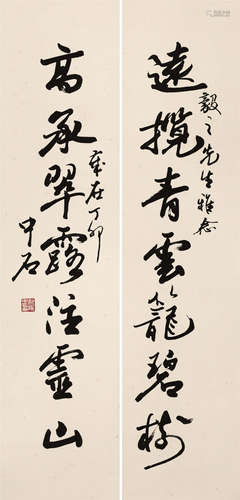 毅之先生雅念
遠攬青雲籠碧樹
高承翠露注靈山
歲在丁卯
中石